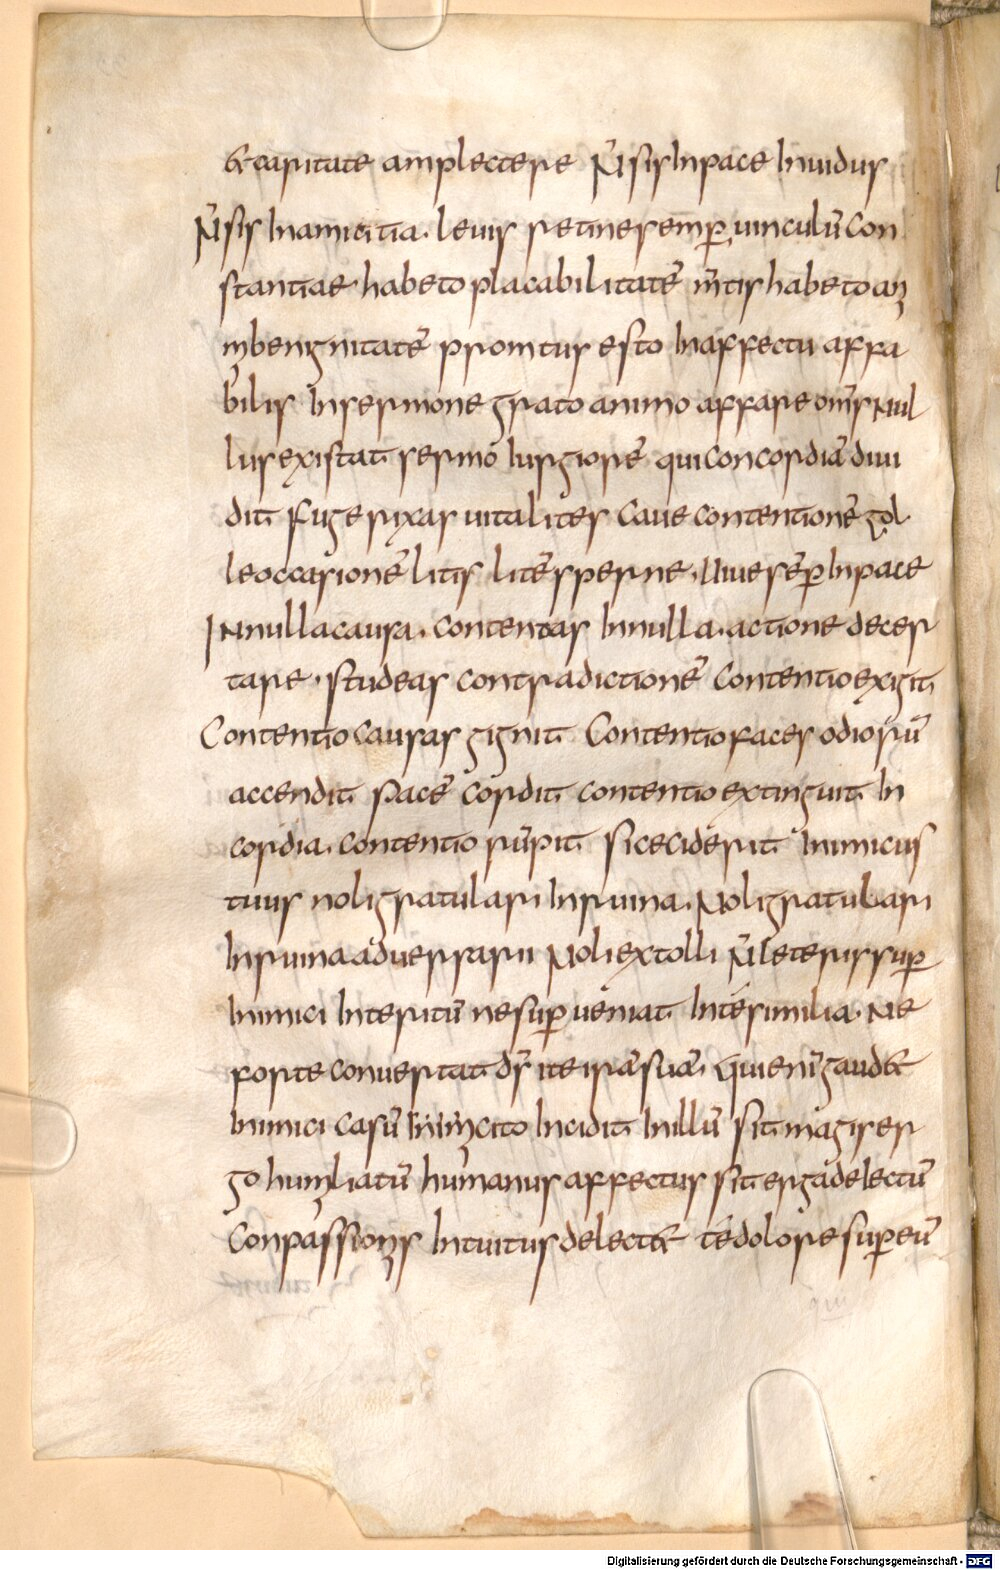 &caritate amplectere N̄sis Inpace Inuidus
N̄sis Inamicitia. leuis retinesemꝑ uinculū Con
stantiae habeto placabilitatē m̄tis habeto ani
mbenignitatē promtus esto Inaffectu affa
bilis Insermone grato animo affare om̄s Nul
lus existat sermo Iurgiorē qui Concordiā diui
dit fuge rixas uita lites Caue Contentionē tol
leoccasionē litis litē sperne. Uiue sēꝑ Inpace
INnullacausa. Contentas Innulla. actione decer
tare. studeas contradictionē Contentio exigit
Contentio Causas gignit Contentio faces odiorū
accendit pacē Cordit contentio extinguit In
cordia. contentio rūpit si ceciderit Inimicus
tuus noli gratulari Inruina. Noli gratulari
Inruina aduersarii Noli extolli N̄ leteris suꝑ
Inimici Interitū nesuꝑueniat Intesimilia. Ne
forte Conuertat d̄s ite irāsuā. Qui enī gaud&
Inimici Casū Cito Incidit Inillū sit magis er
go humiliatū humanus affectus sit erga delectū
Conpassionis Intuitus delect& te dolore suꝑ eū
Digitalisierung gefördert durch die Deutsche Forschungsgemeinschaft - DFG